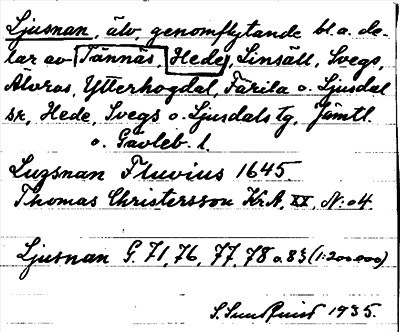 Ljusnan, älv genomflytande bl.a. de-
lar av Tännäs, Hede, Linsäll, Svegs,
Älvros, Ytterhogdal, Färila o. Ljusdal
sr, Hede, Svegs o. Ljusdals tg, Jämtl.
o. Gävleb. l.
Luzsnan Fluvius 1645
Thomas Christersson Kr.A. XX, N:o 4.
Ljusnan G. 71, 76, 77, 78 o. 83 (1:200000)
S. Sundquist 1935.